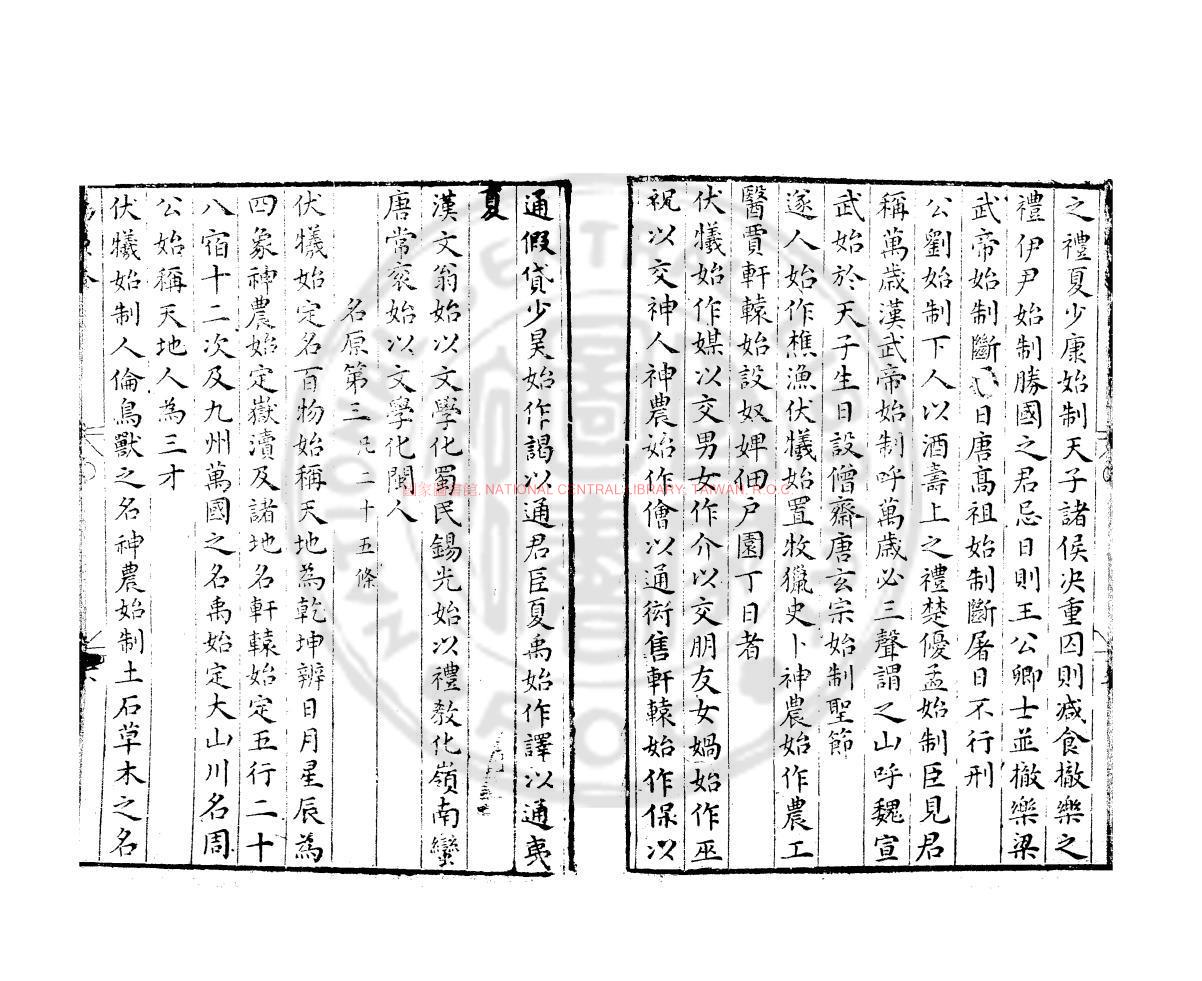 之禮夏少康始制天子諸侯决重囚則减食撤樂之
禮伊尹始制勝國之君忌日則王公卿士並撤樂梁
武帝始制斷日唐髙祖始制斷屠日不行刑
公劉始制下人以酒壽上之禮楚優孟始制臣見君
稱萬歳漢武帝始制呼萬歳必三聲謂之山呼魏宣
武始於天子生日設僧齋唐玄宗始制聖節
遂人始作樵漁伏犧始置牧獵史卜神農始作農工
醫賈軒轅始設奴婢佃户園丁日者
伏犧始作媒以交男女作介以交朋友女媧始作巫
祝以交神人神農始作儈以通衒售軒轅始作保以
通假貸少昊始作謁以通君臣夏禹始作譯以通夷
夏
漢文翁始以文學化蜀民錫光始以禮教化嶺南蠻
唐常衮始以文學化閩人
名原第三 凡二十五條
伏犧始定名百物始稱天地為乾坤辨日月星辰為
四象神農始定嶽瀆及諸地名軒轅始定五行二十
八宿十二次及九州萬國之名禹始定大山川名周
公始稱天地人為三才
伏犧始制人倫鳥獸之名神農始制土石草木之名
國家圖書館, NATIONAL CENTRAL LIBRARY, TAIWAN, R.O.C.